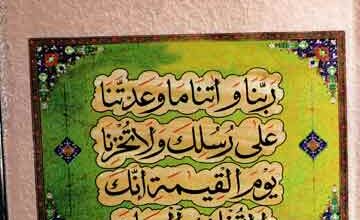 رَبَّنَا وَآتِنَا مَا وَعَدْتَنَا
عَلَىٰ رُسُلِكَ وَلَا تُخْزِنَا
يَوْمَ الْقِيمَةِ اِنَّكَ